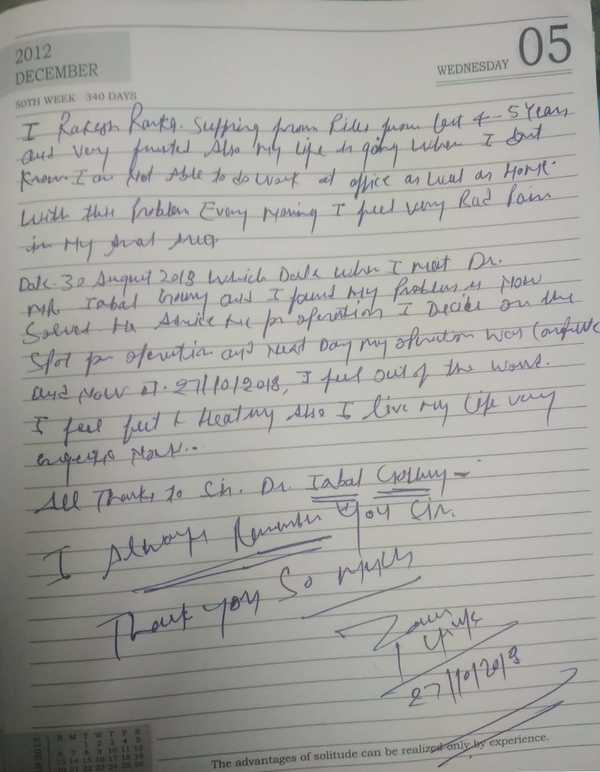 2012
DECEMBER
WEDNESDAY 05
50TH WEEK 340 DAYS
I Rakesh Suffring from Piles from last 4-5 Years
and very Also My life is going when I
Know I am Not Able to do work at office as well as Home.
with this Problem Every Morning I feel very Bad Pain
in My Area
Date. 30 August 2018 which Date when I meet Dr.
Iabal and I found My Problem is Now
Solved He Advice Me for operation I Decide on the
Spot for operation and Next Day my operation was
and Now at. 27/10/2018, I feel out of the world.
I feel & Healthy Also I live my life very
Now..
All Thanks to Sir. Dr. Iabal
I Always Remember You Sir.
Thank you So Much
27/10/2018
S M T W T F S
The advantages of solitude can be realized only by experience.